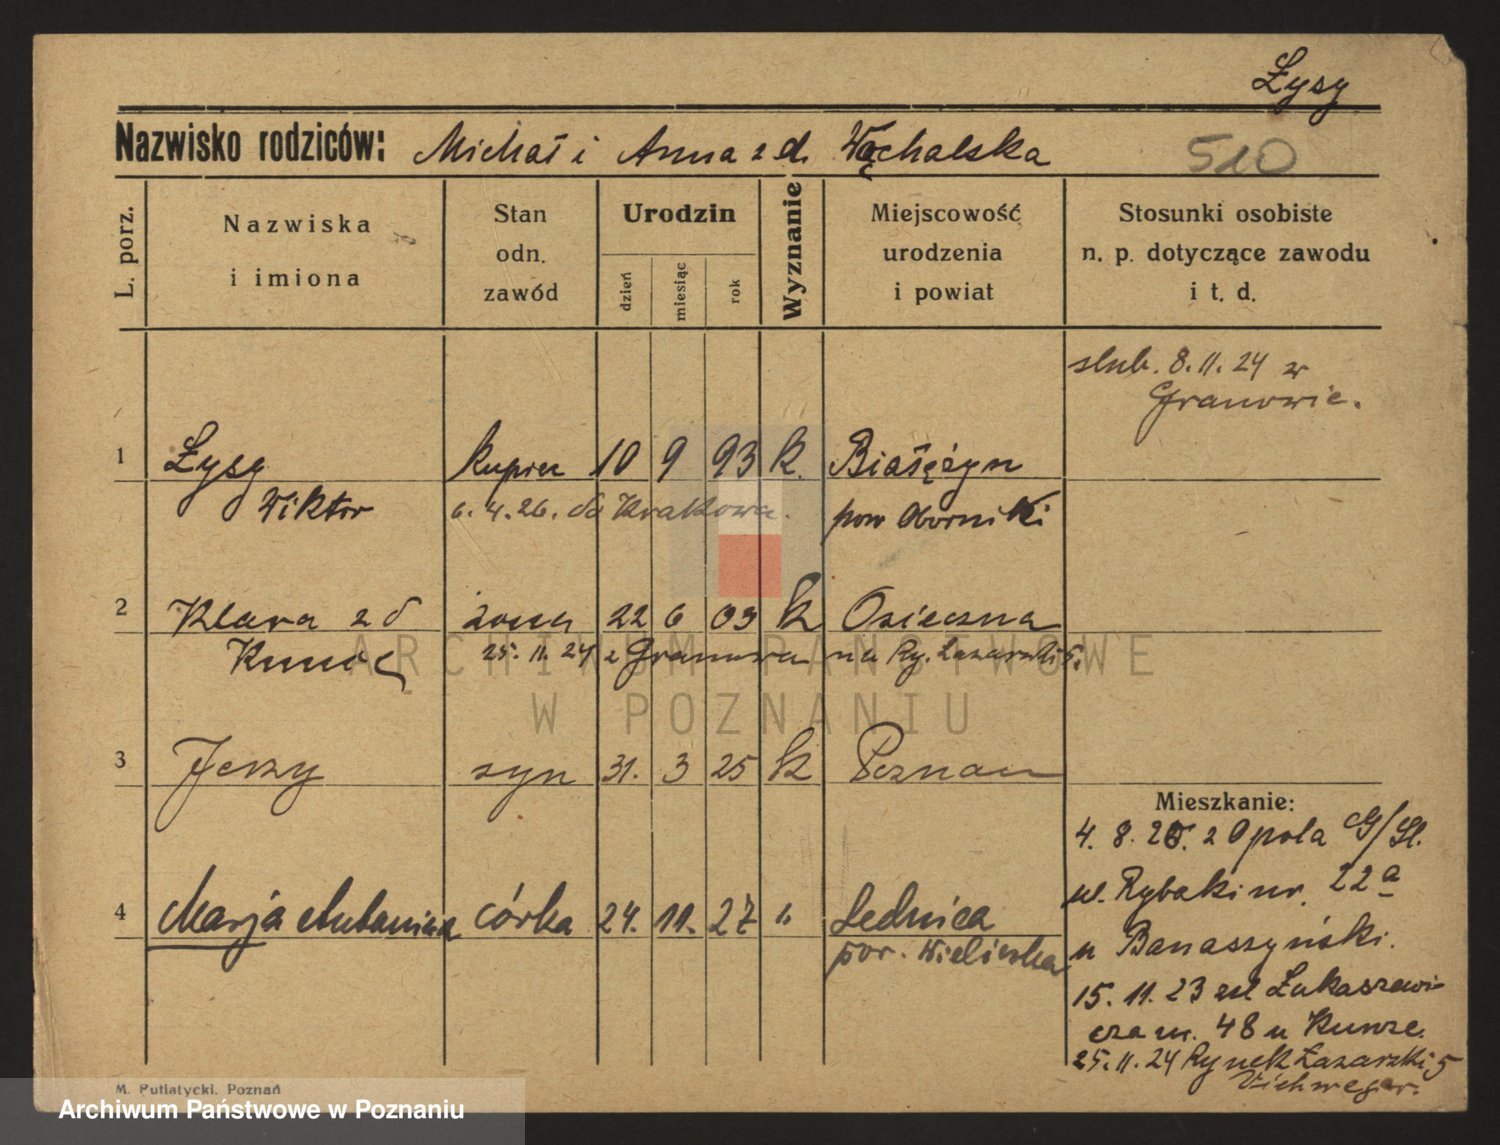 Łysy
Nazwisko rodziców: Michał i Anna z d. Wąchalska
510
L. porz.
Nazwiska i imiona
Stan odn. zawód
Urodzin
dzień
miesiąc
rok
Wyznanie
Miejscowość urodzenia i powiat
Stosunki osobiste n. p. dotyczące zawodu i t. d.
ślub. 8.11.24 w
Granowie.
1 Łysy kupiec 10 9 93 k. Białężyn
Wiktor 6.4.26. do Krakowa. pow Oborniki
2 Klara z d żona 22 6 03 k Osieczna
25.11.24 z Granowa na Ry. Łazarski 5.
3 Jerzy syn 31. 3 25 k Poznań
Mieszkanie:
4. 8. z Opola G/Śl.
ul. Rybaki nr. 22a
4 Marja Antonina córka 24. 11. 27 " Lednica
pow. Wieliczka
u Banaszyński.
15. 11. 23 Łukaszewi-
cza m. 48 u Kunze.
25.11.24 Rynek Łazarski 5
Vichweger.
M. Putiatycki. Poznań
ARCHIWUM PAŃSTWOWE
W POZNANIU
Archiwum Państwowe w Poznaniu